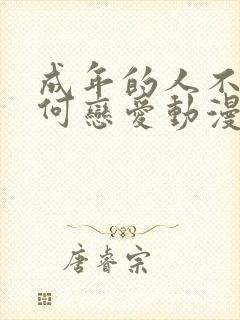 成年的人不
何戀愛動漫
唐睿宗